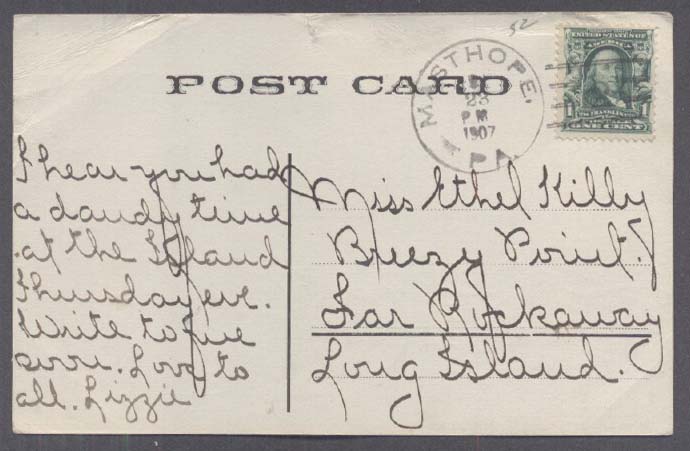 52
UNITED STATES OF
AMERICA
POST CARD
MASTHOPE,
23
P M
1907
PA.
1 1
FRANKLIN
ONE CENT
I hear you had
a dandy time
at the Island
Thursday eve.
Write to
soon. Love to
all. Lizzie
Miss Ethel Killy
Breezy Point.
Far Rockaway
Long Island.